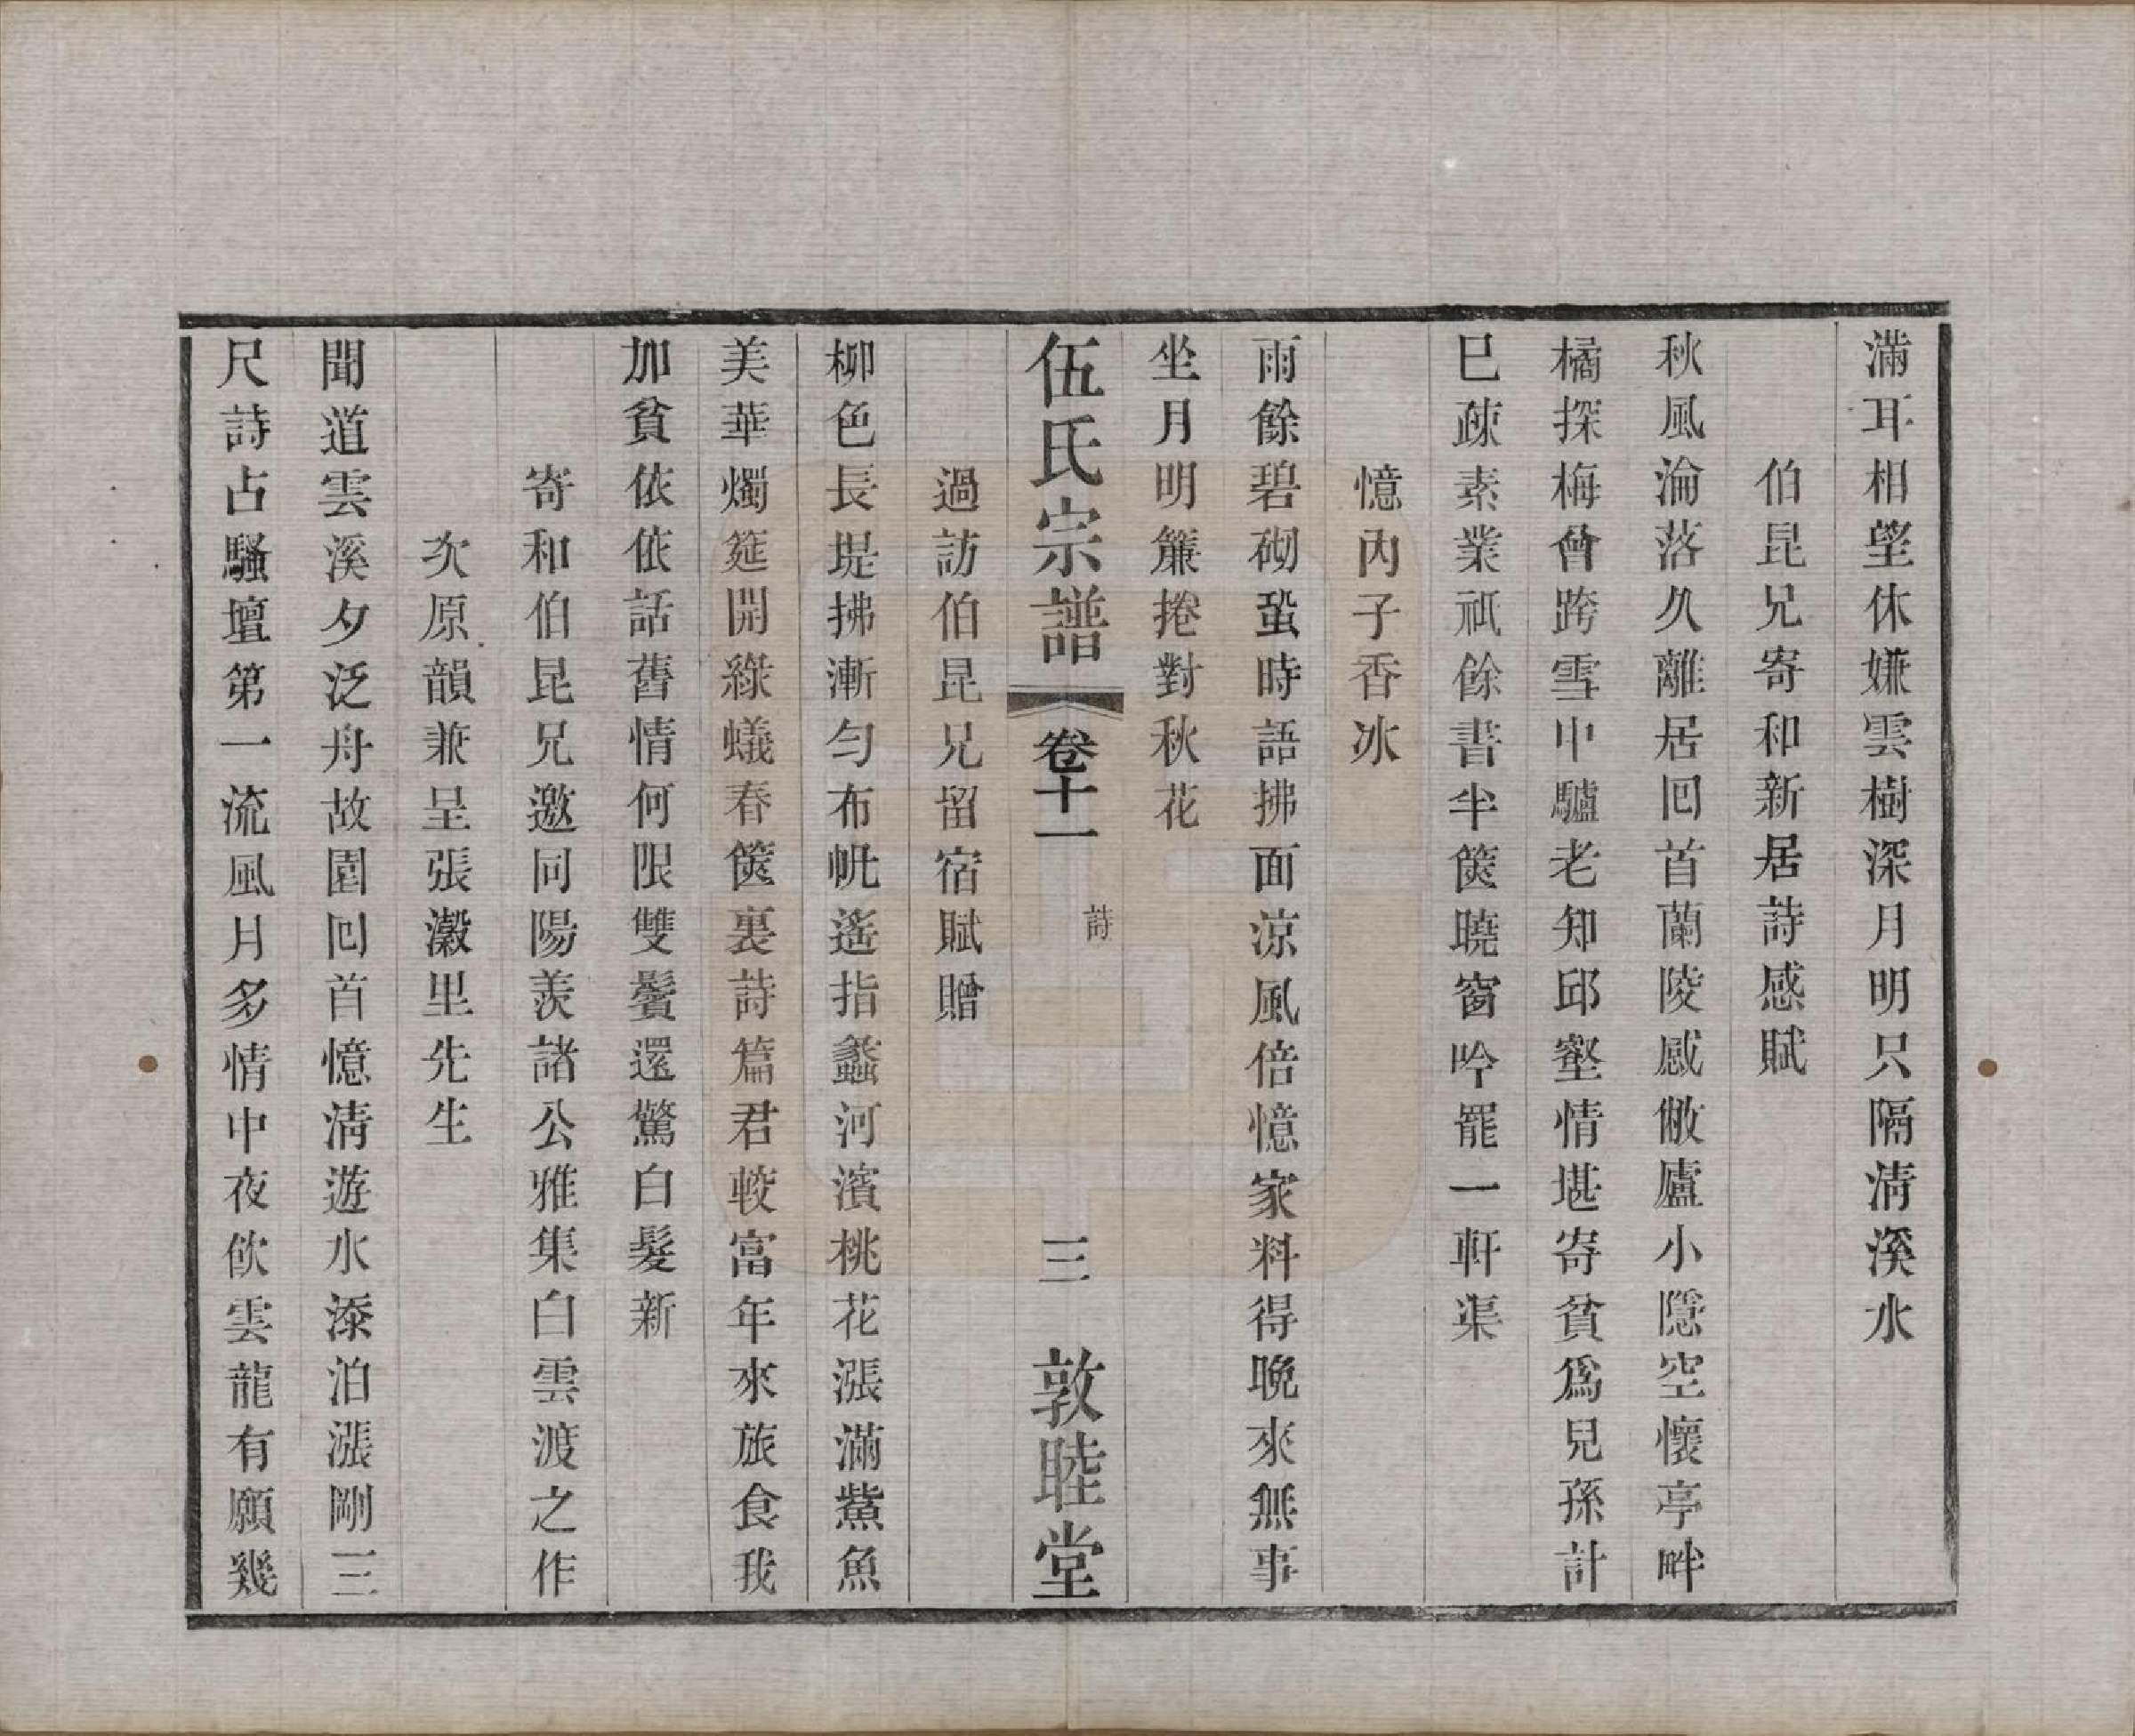 滿耳相望休嫌雲樹深月明只隔淸溪水
伯昆兄寄和新居詩感賦
秋風淪落久離居回首蘭陵感敝廬小隱空懷亭畔
橘探梅曾跨雪中驢老知邱壑情堪寄貧爲兒孫計
巳疎素業祇餘書半篋曉窗吟罷一軒渠
憶內子香冰
雨餘碧砌蛩時語拂面涼風倍憶家料得晚來無事
坐月明簾捲對秋花
伍氏宗譜 卷十一 詩 三 敦睦堂
過訪伯昆兄留宿賦贈
柳色長堤拂漸勻布帆遙指蠡河濱桃花漲滿鱉魚
美華燭筵開綠蟻春篋裏詩篇君較富年來旅食我
加貧依依話舊情何限雙鬢還驚白髮新
寄和伯昆兄邀同陽羨諸公雅集白雲渡之作
次原韻兼呈張瀫里先生
聞道雲溪夕泛舟故園回首憶淸遊水添泊漲剛三
尺詩占騷壇第一流風月多情中夜飲雲龍有願幾